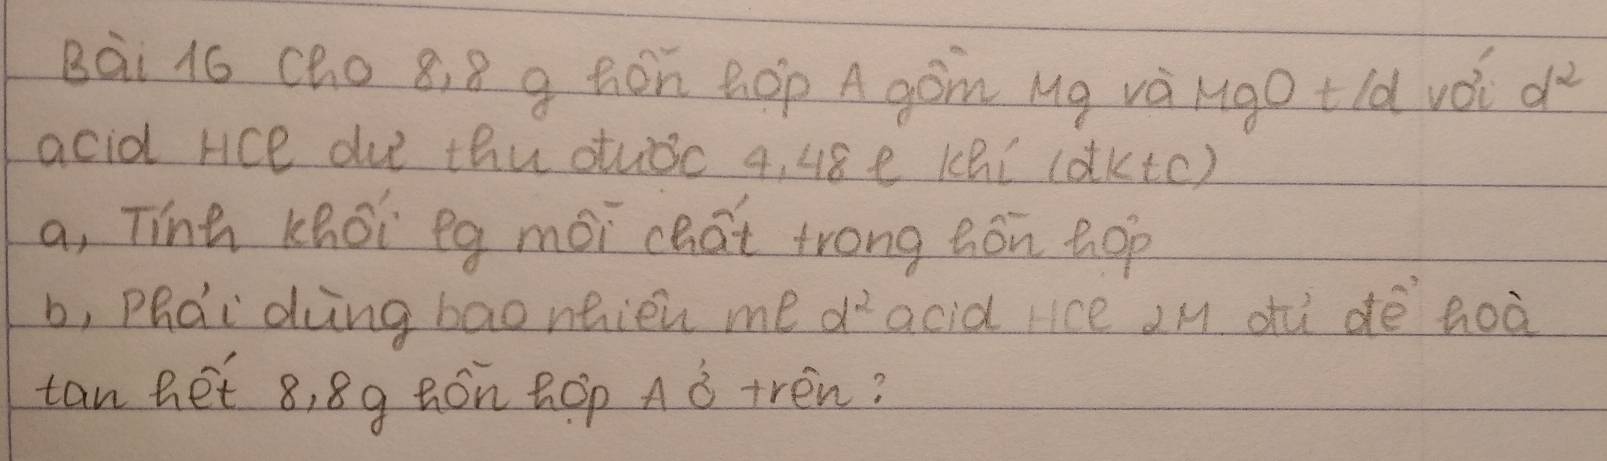 Bài 16 Cho 8,8 g hỗn hợp A gồm Mg và MgO t/d với d²
acid HCl dư thu được 4,48 l khí (đktc)
a, Tính khối lg mỗi chất trong hỗn hợp
b, Phải dùng bao nhiêu ml d² acid HCl 2M đủ để hoà
tan hết 8,8g hỗn hợp A ở trên?